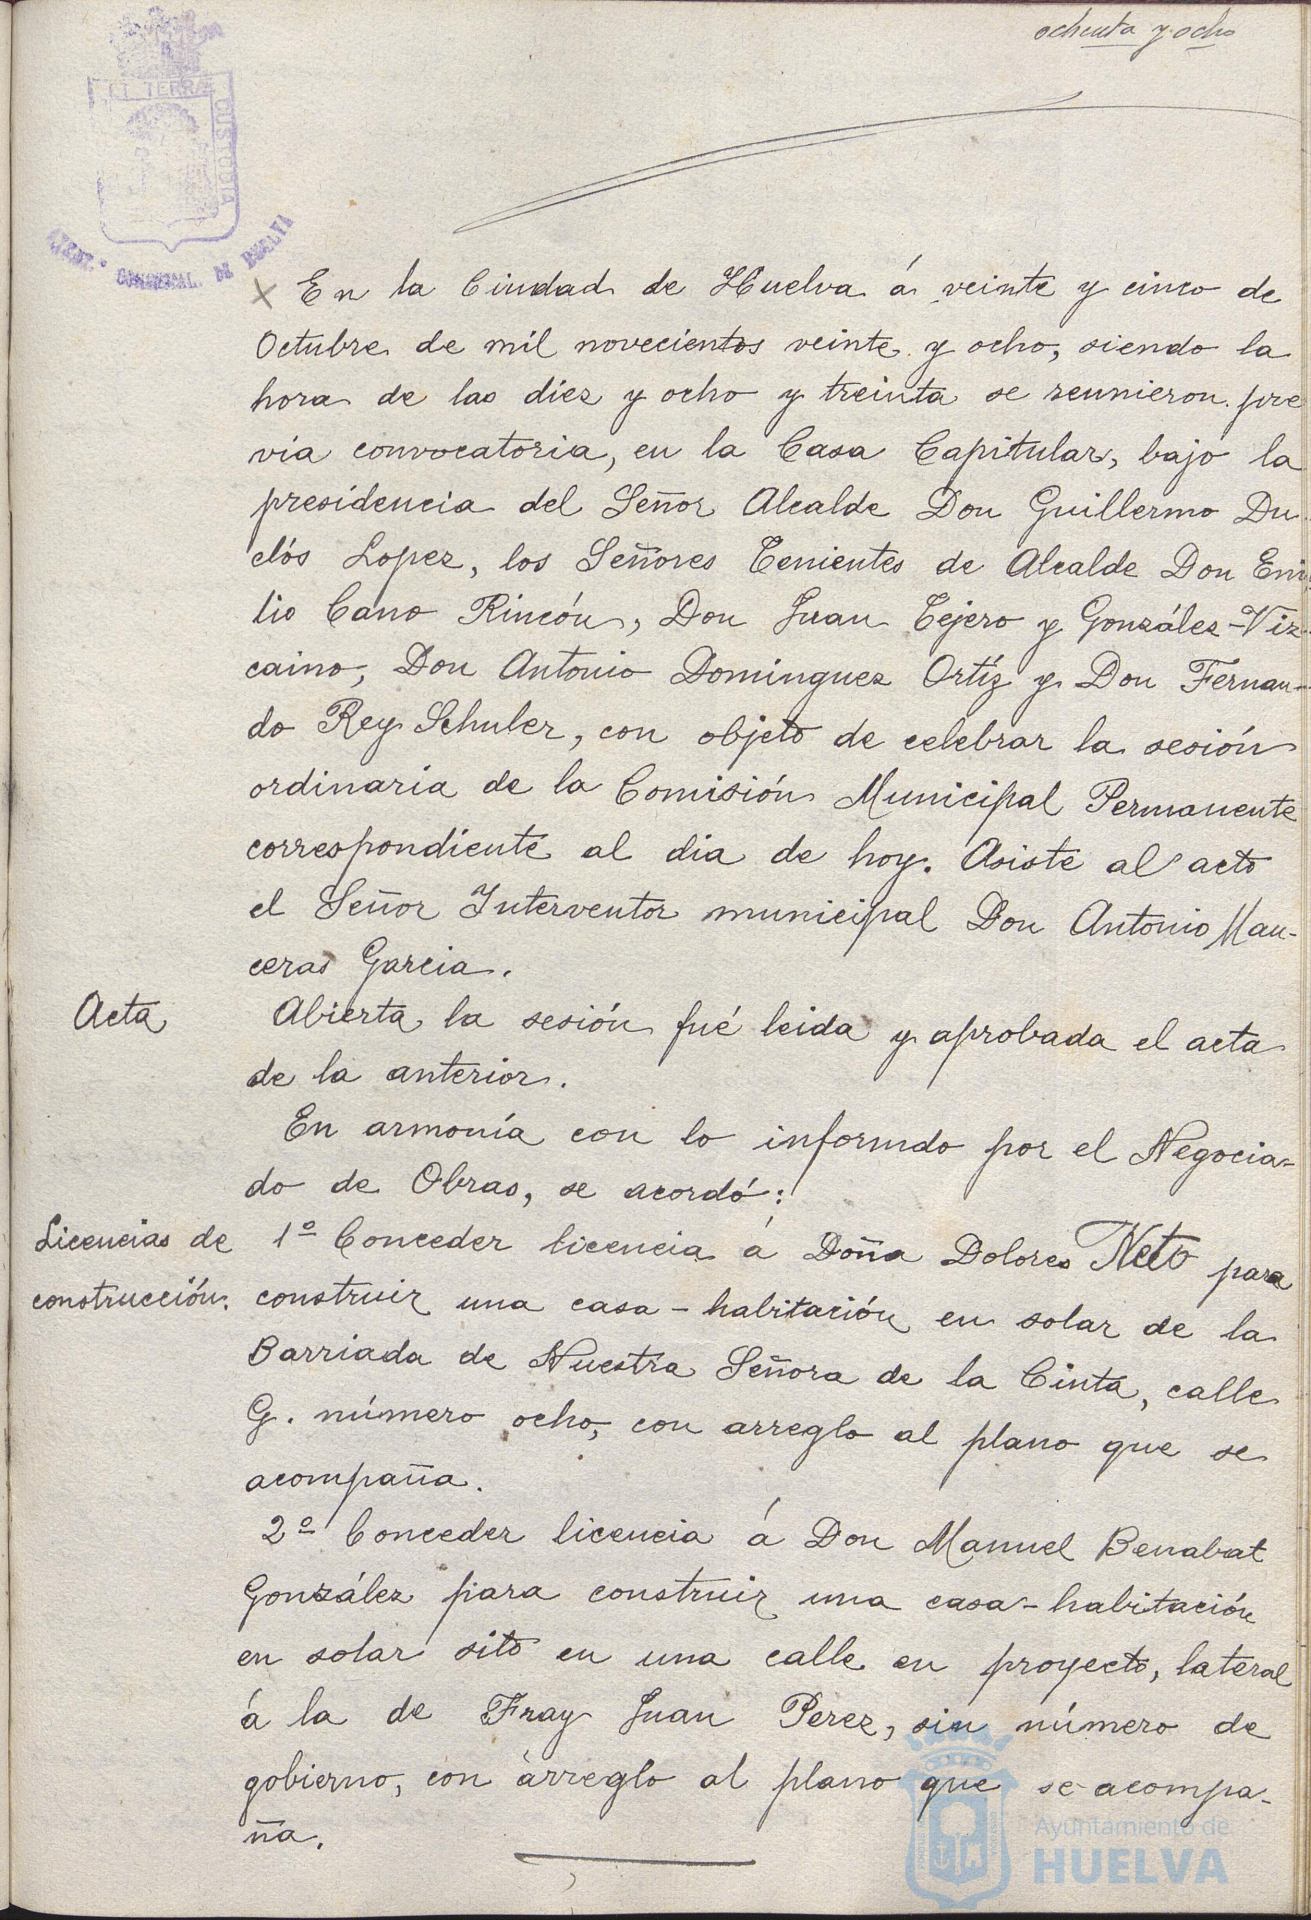 ochenta y ocho
ET TERRÆ
CUSTODIA
DE HUELVA
En la Ciudad de Huelva á veinte y cinco de
Octubre de mil novecientos veinte y ocho, siendo la
hora de las diez y ocho y treinta se reunieron pre
via convocatoria, en la Casa Capitular, bajo la
presidencia del Señor Alcalde Don Guillermo Du-
clós Lopez, los Señores Tenientes de Alcalde Don Emi-
lio Cano Rincón, Don Juan Tejero y González-Viz-
caino, Don Antonio Dominguez Ortíz y Don Fernan-
do Rey Schuler, con objeto de celebrar la sesión
ordinaria de la Comisión Municipal Permanente
correspondiente al dia de hoy. Asiste al acto
el Señor Interventor municipal Don Antonio Man-
ceras Garcia.
Acta
Abierta la sesión fué leida y aprobada el acta
de la anterior.
En armonía con lo informdo por el Negocia-
do de Obras, se acordó:
Licencias de
construcción.
1º Conceder licencia á Doña Dolores Neto para
construir una casa-habitación en solar de la
Barriada de Nuestra Señora de la Cinta, calle
G. número ocho, con arreglo al plano que se
acompaña.
2º Conceder licencia á Don Manuel Benabat
González para construir una casa-habitación
en solar sito en una calle en proyecto, lateral
á la de Fray Juan Perez, sin número de
gobierno, con arreglo al plano que se acompa-
ña.
Ayuntamiento de
HUELVA